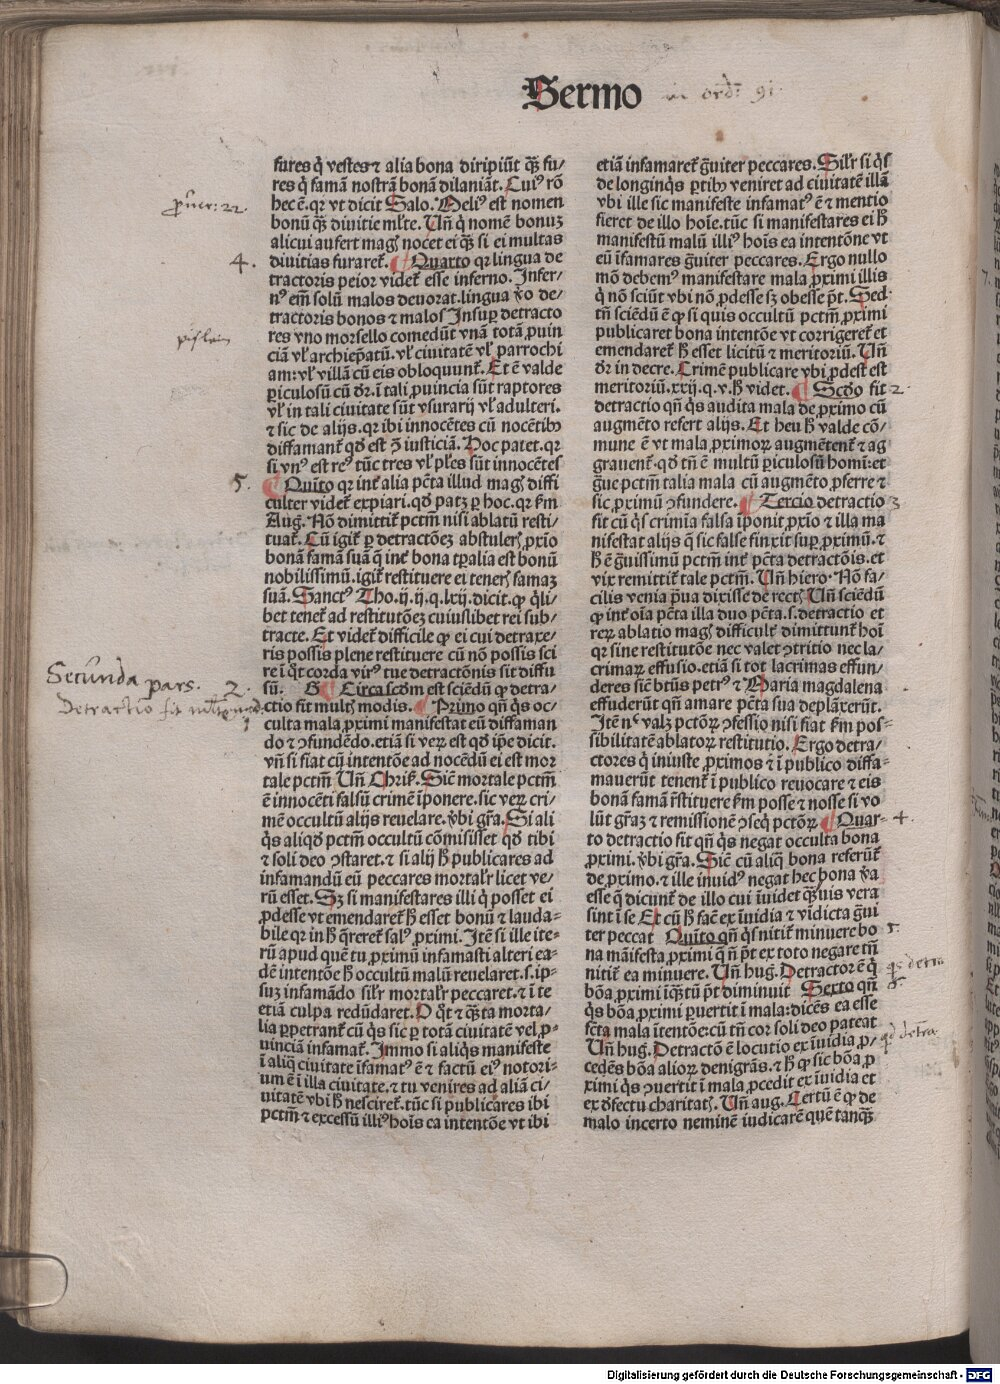 Sermo
fures q̇ vestes ⁊ alia bona diripiūt q̄ꝫ fu/
res q̇ famā nostrā bonā dilaniāt. Cuiꝰ rō
hec ē. qꝛ vt dicit Salo. Meliꝰ est nomen
bonū q̄ꝫ diuitie mĺte. Un̄ q̇ nomē bonuꝫ
alicui aufert magꝭ nocet ei q̄ꝫ si ei multas
diuitias furaret᷑. ¶ Quarto qꝛ lingua de
tractoris peior videt᷑ esse inferno. Infer/
nꝰ em̄ solū malos deuorat. lingua ꝟo de/
tractoris bonos ⁊ malos Insuꝑ detracto
res vno morsello comedūt vnā totā ꝓuin
ciā vĺ archiep̄atū. vĺ ciuitatē vĺ parrochi
am: vĺ villā cū eis obloquunt᷑. Et ē valde
ꝑiculosū cū dr̄. ī tali ꝓuincia sūt raptores
vĺ in tali ciuitate sūt vsurarij vĺ adulteri.
⁊ sic de alijs. qꝛ ibi innocētes cū nocētibꝰ
diffamant᷑ qd̄ est ꝯ̄ iusticiā. Hoc patet. qꝛ
si vnꝰ est reꝰ tūc tres vĺ pĺes sūt innocētes
¶ Quīto qꝛ int᷑ alia pctā illud magꝭ diffi
culter videt᷑ expiari. qd̄ patꝫ ꝑ hoc. qꝛ ẜm
Aug. Nō dimittit᷑ pctm̄ nisi ablatū resti/
tuat᷑. Cū igit᷑ ꝑ detractōeꝫ abstulerꝭ ꝓxīo
bonā famā suā q̄ int᷑ bona tꝑalia est bonū
nobilissimū. igit᷑ restituere ei tenerꝭ famaꝫ
suā. Sanctꝰ Tho. ij. ij. q. lxij. dicit. ꝙ q̇li/
bet tenet᷑ ad restitutōeꝫ cuiuslibet rei sub/
tracte. Et videt᷑ difficile ꝙ ei cui detraxe/
ris possis plene restituere cū nō possis sci
re ī q̇t corda virꝰ tue detractōnis sit diffu
sū. B ¶ Circa scd̄m est sciēdū ꝙ detra/
ctio fit multꝭ modis. ¶ Primo qn̄ q̇s oc/
culta mala ꝓximi manifestat eū diffaman
do ⁊ ꝯfundēdo. etiā si veꝝ est qd̄ ip̄e dicit.
vn̄ si fiat cū intentōe ad nocēdū ei est mor
tale pctm̄ Un̄ Chriſ. Sic̄ mortale pctm̄
ē innocēti falsū crimē īponere. sic veꝝ cri/
mē occultū alijs reuelare. ꝟbi gr̄a. Si ali
q̇s aliqd̄ pctm̄ occultū cōmisisset qd̄ tibi
⁊ soli deo ꝯstaret. ⁊ si alij ħ publicares ad
infamandū eū peccares mortaĺr licet ve/
rū esset. Sꝫ si manifestares illi q̇ posset ei
ꝓdesse vt emendaret᷑ ħ esset bonū ⁊ lauda-
bile qꝛ in ħ q̄reret᷑ salꝰ ꝓximi. Itē si ille ite-
rū apud quē tu ꝓximū infamasti alteri ea-
dē intentōe ħ occultū malū reuelaret. s. ip-
suꝫ infamādo siĺr mortaĺr peccaret. ⁊ ī te
etiā culpa redūdaret. O q̇t ⁊ q̄ꝫta morta/
lia ꝑpetrant᷑ cū q̇s sic ꝑ totā ciuitatē vel ꝓ-
uinciā infamat᷑. Immo si aliq̇s manifeste
ī aliq̄ ciuitate īfamatꝰ ē ⁊ factū eiꝰ notori-
um ē ī illa ciuitate. ⁊ tu venires ad aliā ci/
uitatē vbi ħ nesciret᷑. tūc si publicares ibi
pctm̄ ⁊ excessū illiꝰ hoīs ea intentōe vt ibi
etiā infamaret᷑ gͣuiter peccares. Siĺr si q̇s
de longinq̇s ꝑtibꝰ veniret ad ciuitatē illā
vbi ille sic manifeste infamatꝰ ē ⁊ mentio
fieret de illo hoīe. tūc si manifestares ei ħ
manifestū malū illiꝰ hoīs ea intentōne vt
eū īfamares gͣuiter peccares. Ergo nullo
mō debemꝰ manifestare mala ꝓximi illis
q̇ nō sciūt vbi nō ꝓdesse sꝫ obesse pt̄. Sed
tn̄ sciēdū ē ꝙ si quis occultū pctm̄ ꝓximi
publicaret bona intentōe vt corrigeret᷑ et
emendaret᷑ ħ esset licitū ⁊ meritoriū. Un̄
dr̄ in decre. Crimē publicare vbi ꝓdest est
meritoriū. xxij. q. v. ħ videt. ¶ Scd̄o fit 2
detractio qn̄ q̇s audita mala de ꝓximo cū
augmēto refert alijs. Et heu ħ valde cō/
mune ē vt mala ꝓximoꝝ augmētent᷑ ⁊ ag
grauent᷑. qd̄ tn̄ ē multū ꝑiculosū homī: et
gͣue pctm̄ talia mala cū augmēto ꝓferre ⁊
sic ꝓximū ꝯfundere. ¶ Tercio detractio 3
fit cū q̇s crimīa falsa īponit ꝓxīo ⁊ illa ma
nifestat alijs q̄ sic false finxit suꝑ ꝓximū. ⁊
ħ ē gͣuissimū pctm̄ int᷑ pctā detractōis. et
vix remittit᷑ tale pctm̄. Un̄ hiero. Nō fa/
cilis venia ꝓua dixisse de rectꝭ Un̄ sciēdū
ꝙ int᷑ oīa pctā illa duo pctā. s. detractio et
reꝝ ablatio magꝭ difficult᷑ dimittunt᷑ hoī
qꝛ sine restitutōe nec valet ꝯtritio nec la/
crimaꝝ effusio. etiā si tot lacrimas effun/
deres sic̄ btūs petrꝰ ⁊ Maria magdalena
effuderūt qn̄ amare pctā sua deplāxerūt.
Itē nꝰ valꝫ pctōꝝ ꝯfessio nisi fiat ẜm pos-
sibilitatē ablatoꝝ restitutio. Ergo detra/
ctores q̇ iniuste ꝓximos ⁊ ī publico diffa-
mauerūt tenent᷑ ī publico reuocare ⁊ eis
bonā famā r̄stituere ẜm posse ⁊ nosse si vo
lūt gr̄aꝫ ⁊ remissionē ꝯseq̇ pctōꝝ. ¶ Quar- 4.
to detractio fit qn̄ q̇s negat occulta bona
ꝓximi. ꝟbi gr̄a. Sic̄ cū aliq̄ bona referūt᷑
de ꝓximo. ⁊ ille inuidꝰ negat hec bona ꝟa
esse q̄ dicunt᷑ de illo cui īuidet q̄ꝫuis vera
sint ī se Et cū ħ facē ex īuidia ⁊ vīdicta gͣui
ter peccat Quīto qn̄ q̇s nitit᷑ minuere bo 5.
na māifesta ꝓximi q̄ n̄ pt̄ ex toto negare tn̄
nitit᷑ ea minuere. Un̄ hug. Detractor ē q̇
bōa ꝓximi īq̄ꝫtū pt̄ diminuit Sexto qn̄ 6.
q̇s bōa ꝓximi ꝑuertit ī mala: dicēs ea esse
fctā mala ītentōe: cū tn̄ cor soli deo pateat
Un̄ hug. Detractō ē locutio ex īuidia ꝓ/
cedēs bōa alioꝝ denigrās. ⁊ ħ ꝙ sic bōa ꝓ
ximi q̇s ꝯuertit ī mala ꝓcedit ex īuidia et
ex defectu charitatꝭ. Un̄ aug. Certū ē ꝙ de
malo incerto neminē iudicare quē tanq̄ꝫ
4.
5.
Secūnda pars. 2.
Digitalisierung gefördert durch die Deutsche Forschungsgemeinschaft - DFG